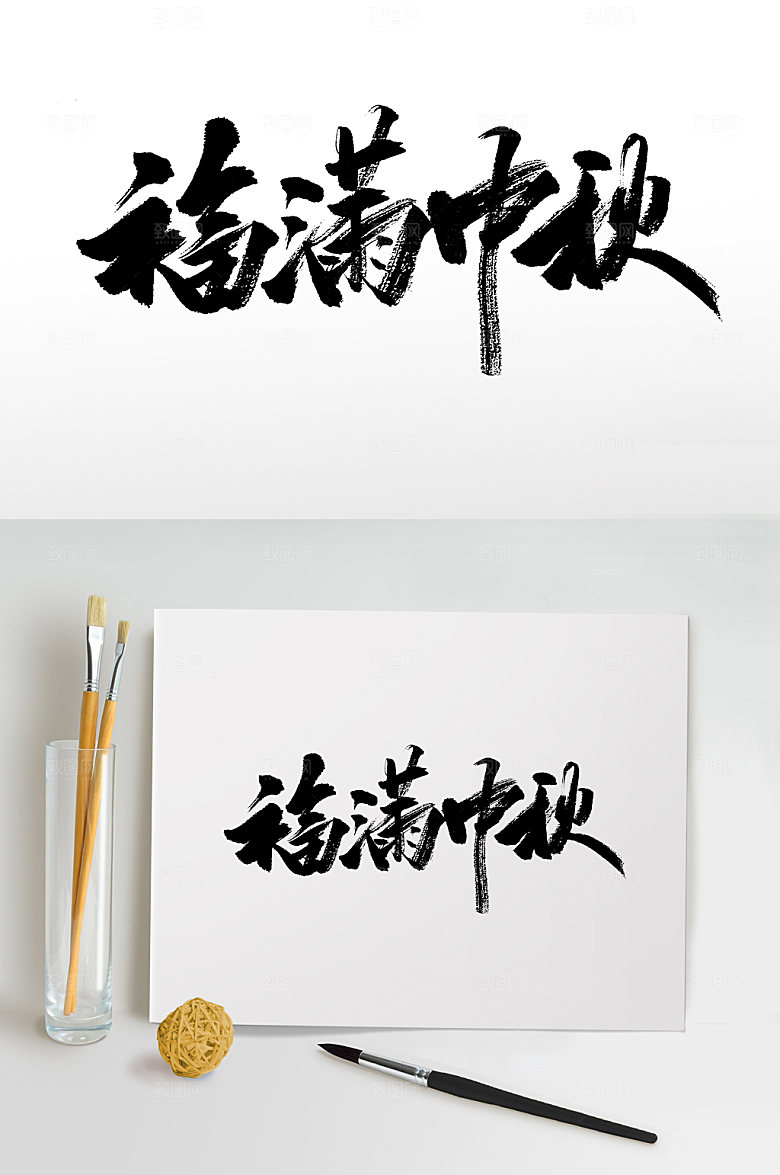 福满中秋
福满中秋